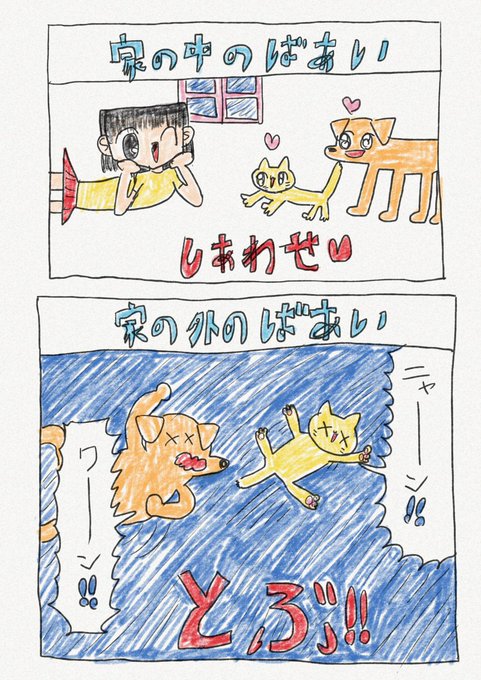 家の中のばあい
しあわせ♥
家の外のばあい
ニャーン!!
ワーン!!
とぶ!!